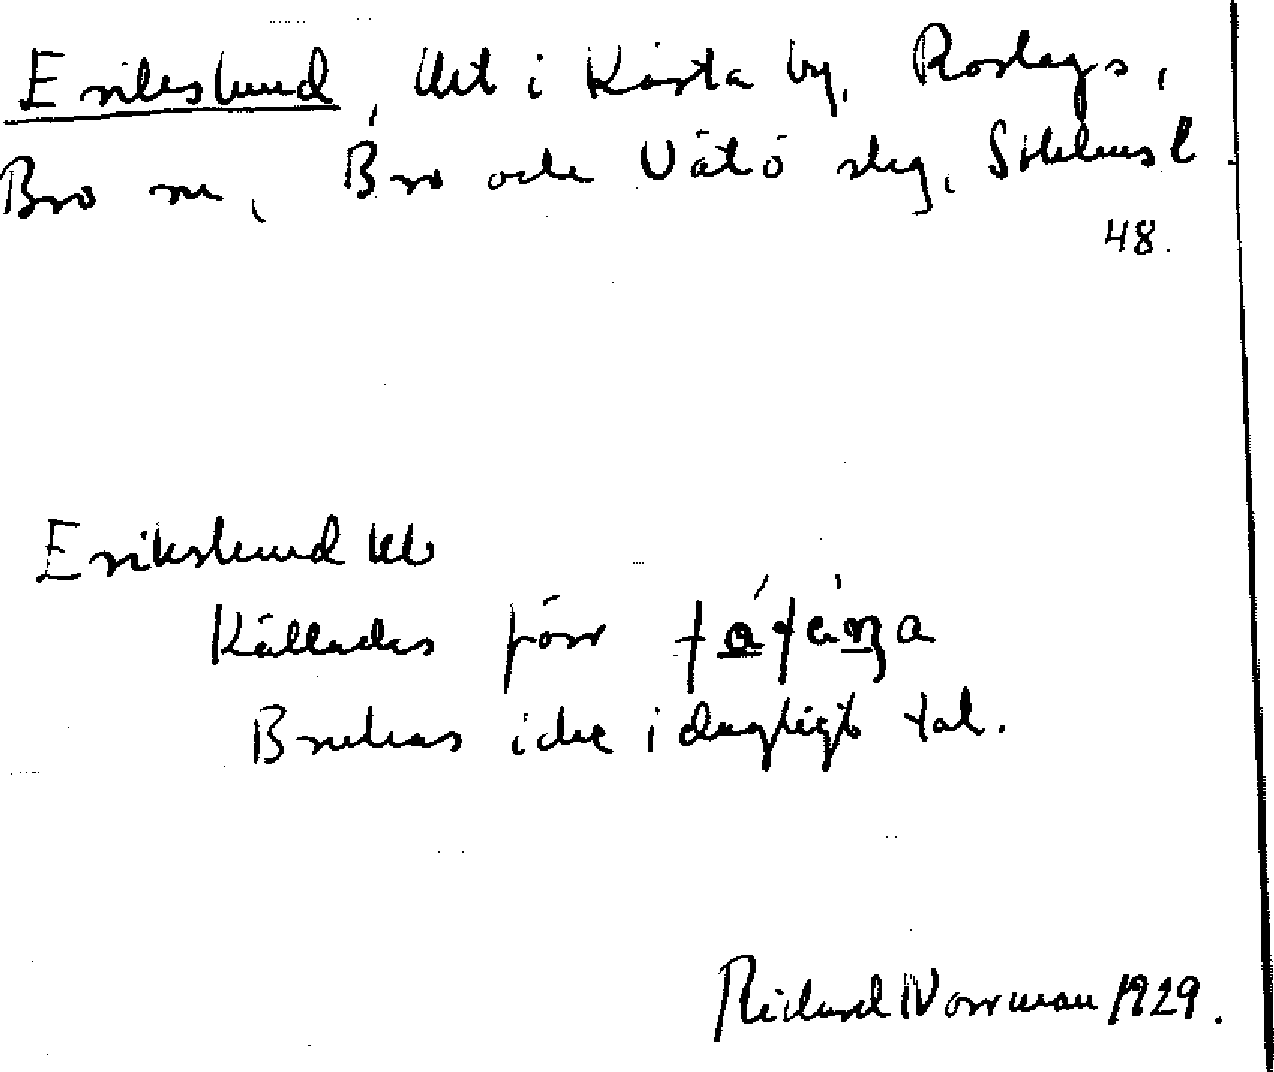 Erikslund, lht i Kårsta by, Roslags,
Bro sn, Bro och Vätö skg, Sthlms l
48.
Erikslund lht
Kallades förr
Brukas icke i dagligt tal.
Richard Norrman 1929.